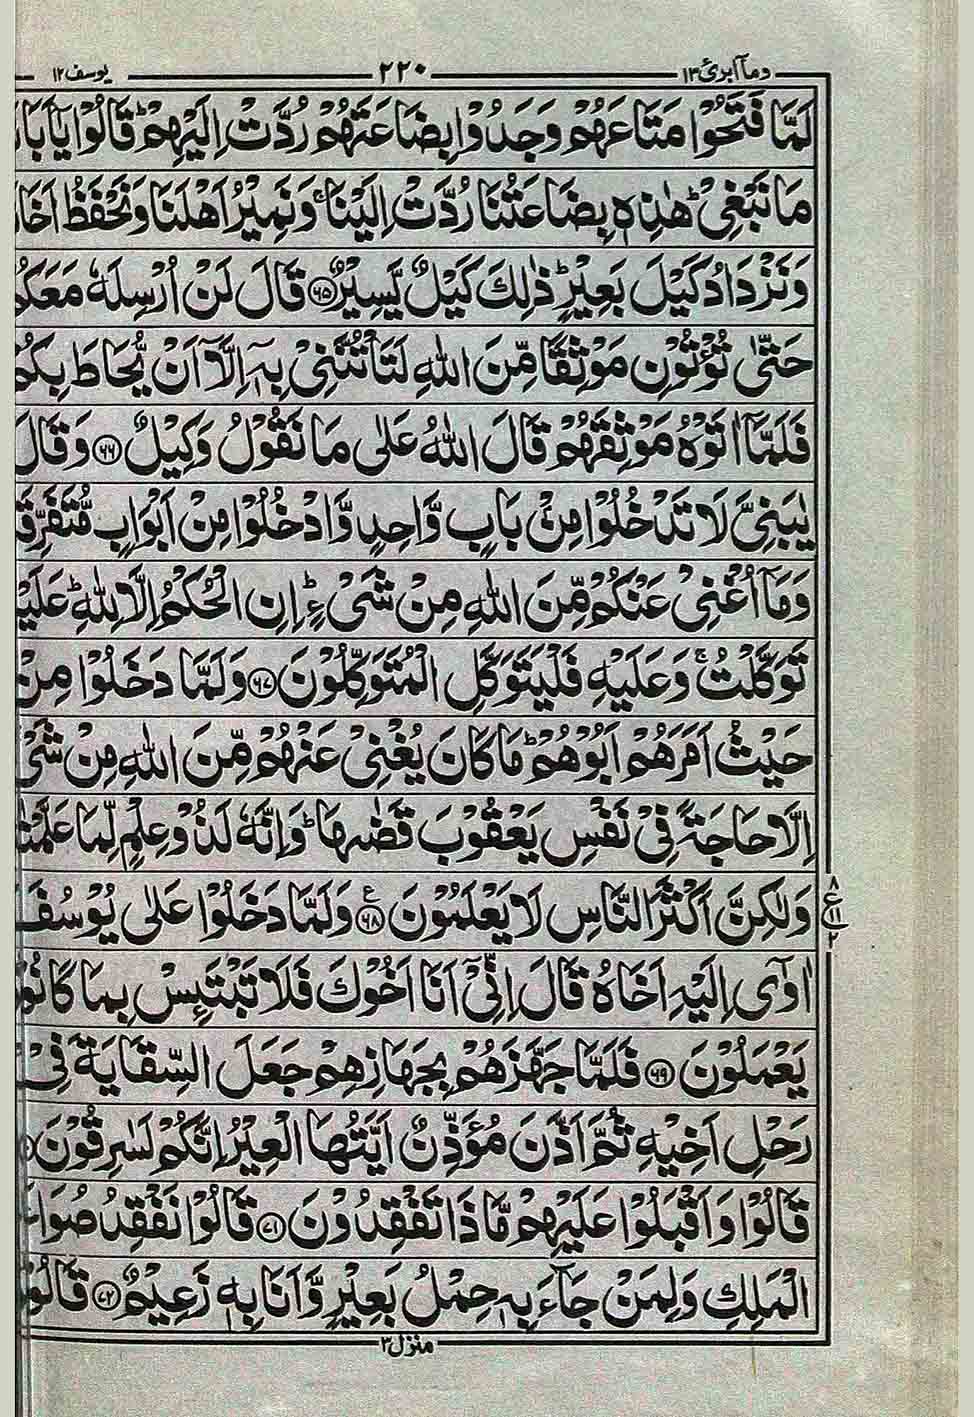 وما آبرئ ۱۳ ۲۲۰ یوسف ۱۲
لَمَّا فَتَحُوْا مَتَاعَهُمْ وَجَدُوْا بِضَاعَتَهُمْ رُدَّتْ اِلَيْهِمْ ؕ قَالُوْا يٰۤاَبَا
مَا نَبْغِىْ ؕ هٰذِهٖ بِضَاعَتُنَا رُدَّتْ اِلَيْنَا ۚ وَنَمِيْرُ اَهْلَنَا وَنَحْفَظُ اَخَا
وَنَزْدَادُ كَيْلَ بَعِيْرٍ ؕ ذٰلِكَ كَيْلٌ يَّسِيْرٌ ﴿۶۵﴾ قَالَ لَنْ اُرْسِلَهٗ مَعَكُمْ
حَتّٰى تُؤْتُوْنِ مَوْثِقًا مِّنَ اللّٰهِ لَتَاْتُنَّنِىْ بِهٖۤ اِلَّاۤ اَنْ يُّحَاطَ بِكُمْ
فَلَمَّاۤ اٰتَوْهُ مَوْثِقَهُمْ قَالَ اللّٰهُ عَلٰى مَا نَقُوْلُ وَكِيْلٌ ﴿۶۶﴾ وَقَالَ
يٰبَنِىَّ لَا تَدْخُلُوْا مِنْۢ بَابٍ وَّاحِدٍ وَّادْخُلُوْا مِنْ اَبْوَابٍ مُّتَفَرِّقَ
وَمَاۤ اُغْنِىْ عَنْكُمْ مِّنَ اللّٰهِ مِنْ شَىْءٍ ؕ اِنِ الْحُكْمُ اِلَّا لِلّٰهِ ؕ عَلَيْ
تَوَكَّلْتُ ۚ وَعَلَيْهِ فَلْيَتَوَكَّلِ الْمُتَوَكِّلُوْنَ ﴿۶۷﴾ وَلَمَّا دَخَلُوْا مِنْ
حَيْثُ اَمَرَهُمْ اَبُوْهُمْ ؕ مَا كَانَ يُغْنِىْ عَنْهُمْ مِّنَ اللّٰهِ مِنْ شَىْ
اِلَّا حَاجَةً فِىْ نَفْسِ يَعْقُوْبَ قَضٰٮهَا ؕ وَاِنَّهٗ لَذُوْ عِلْمٍ لِّمَا عَلَّمْنٰ
وَلٰكِنَّ اَكْثَرَ النَّاسِ لَا يَعْلَمُوْنَ ﴿۶۸﴾ ع وَلَمَّا دَخَلُوْا عَلٰى يُوْسُفَ
۸ ع ۱۱ ۲
اٰوٰٓى اِلَيْهِ اَخَاهُ قَالَ اِنِّىْۤ اَنَا اَخُوْكَ فَلَا تَبْتَئِسْ بِمَا كَانُوْ
يَعْمَلُوْنَ ﴿۶۹﴾ فَلَمَّا جَهَّزَهُمْ بِجَهَازِهِمْ جَعَلَ السِّقَايَةَ فِىْ
رَحْلِ اَخِيْهِ ثُمَّ اَذَّنَ مُؤَذِّنٌ اَيَّتُهَا الْعِيْرُ اِنَّكُمْ لَسٰرِقُوْنَ
قَالُوْا وَاَقْبَلُوْا عَلَيْهِمْ مَّاذَا تَفْقِدُوْنَ ﴿۷۱﴾ قَالُوْا نَفْقِدُ صُوَاعَ
الْمَلِكِ وَلِمَنْ جَآءَ بِهٖ حِمْلُ بَعِيْرٍ وَّاَنَا بِهٖ زَعِيْمٌ ﴿۷۲﴾ قَالُوْ
منزل ۳